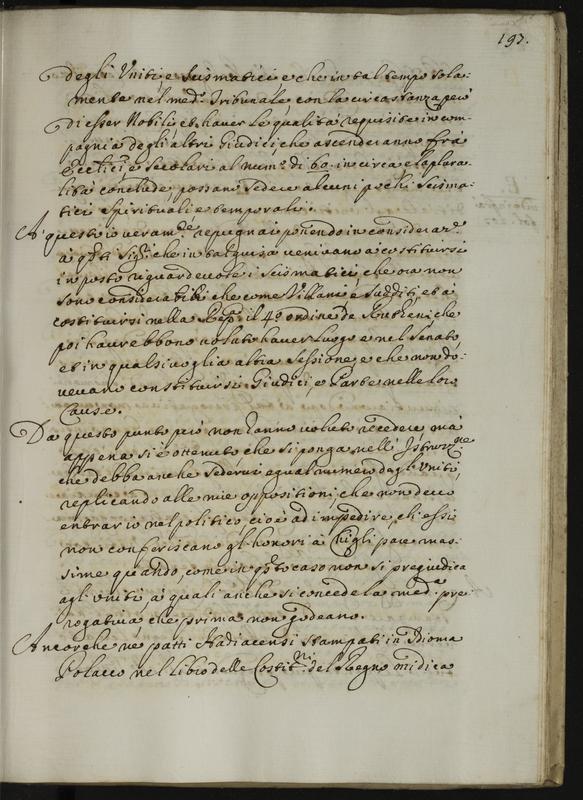 197.
degli Uniti e Scismatici e che in tal tempo sola-
mente nel med.º Tribunale con la circostanza però
di esser Nobili, et haver le qualità requisite in com-
pagnia degli altri Giudici, che ascenderanno frà
Ecc.tici e Secolari al num.º di 60. in circa e la plura-
lità conclude, possano sedere alcuni pochi Scisma-
tici spirituali e temporali.
A questo io veram.te repugnai ponendo in consideraz.e
a q.sti Sig.ri che in tal guisa venivano a costituirsi
in posto riguardevole i Scismatici, che ora non
sono considerabili che come Villani e Sudditi, et à
costituirsi nella Rep.ca il 4º ordine de Rutheni che
poi haurebbono voluto haver luogo e nel Senato
et in qualsivoglia altra sessione e che non do-
vevano constituirsi Giudici, e Parte nelle loro
Cause.
Da questo punto però non hanno voluto recedere mà
appena si è ottenuto che si ponga nell' Istruzz.ne
che debba anche sedervi egual numero dagl' Uniti,
replicando alle mie oppositioni, che non devo
entrar io nel politico, cioè ad impedire, che essi
non conferiscano gl' honori à chi gli pare mas-
sime quando, come in q.sto caso non si pregiudica
agl' Uniti, a quali anche si concede la med.a pre-
rogativa che prima non godeano.
Ancorche ne patti Hadiacensi stampati in Idioma
Polacco nel Libro delle Costit.ni del Regno mi dica